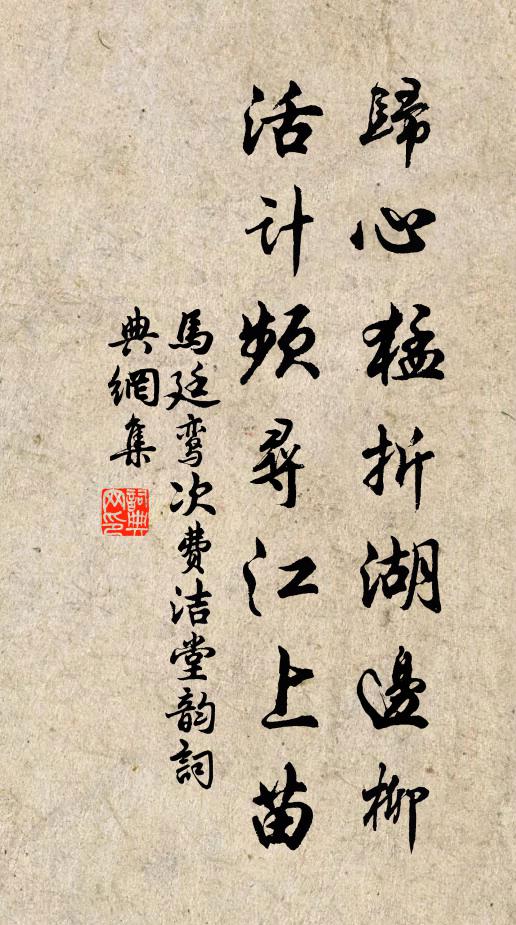 歸心猛折湖邊柳
活計頻尋江上苗
馬廷鸞次費洁堂韵詞
典網集
詞典网印